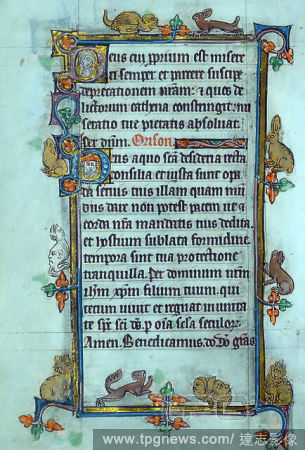 Deus cui proprium est misere
ri semper et parcere suscipe
deprecationem nostram: et quos de
lictorum cathena constringit: mi
seratio tue pietatis absoluat.
per dnm. Orison.
Deus a quo sca desideria recta
consilia et iusta sunt ope
ra seruis tuis illam quam mun
dus dare non potest pacem ut et
corda nra mandatis tuis dedita
et hostium sublata formidine
tempora sint tua protectione
tranquilla. Per dominum nrm
ihm xpm filium tuum. qui
tecum uiuit et regnat in unita
te sps sci ds. p oia scla seculor.
Amen. Benedicamus. do. Do gras.
www.tpgnews.com/達志影像